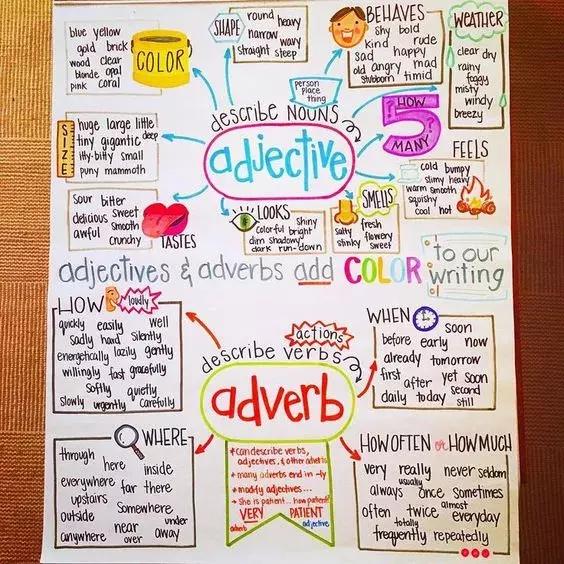 blue yellow
gold brick
wood clear
blonde opal
pink coral
COLOR
SHAPE
round heavy
narrow wavy
straight steep
BEHAVES
shy bold
kind rude
sad happy
old angry mad
stubborn timid
WEATHER
clear dry
rainy
foggy
misty
windy
breezy
person
place
thing
describe NOUNS
adjective
HOW
5
MANY
SIZE
huge large little
tiny gigantic deep
itty-bitty small
puny mammoth
FEELS
cold bumpy
slimy heavy
warm smooth
squishy
cool hot
sour bitter
delicious sweet
smooth
awful crunchy
TASTES
LOOKS
shiny
colorful bright
dim shadowy
dark run-down
SMELLS
salty fresh
flowery
stinky sweet
adjectives & adverbs add COLOR to our
writing
HOW
loudly
quickly easily well
sadly hard silently
energetically lazily gently
willingly fast gracefully
softly quietly
slowly urgently carefully
actions
describe verbs
adverb
WHEN
soon
before early now
already tomorrow
first after yet soon
daily today second
still
WHERE
through
here inside
everywhere far there
upstairs
outside somewhere
near under
anywhere over away
• can describe verbs,
adjectives, & other adverbs
• many adverbs end in -ly
• modify adjectives...
• She is patient... how patient?
VERY PATIENT
adverb adjective
HOW OFTEN or HOW MUCH
very really never seldom
usually
always once sometimes
often twice almost
everyday
totally
frequently repeatedly